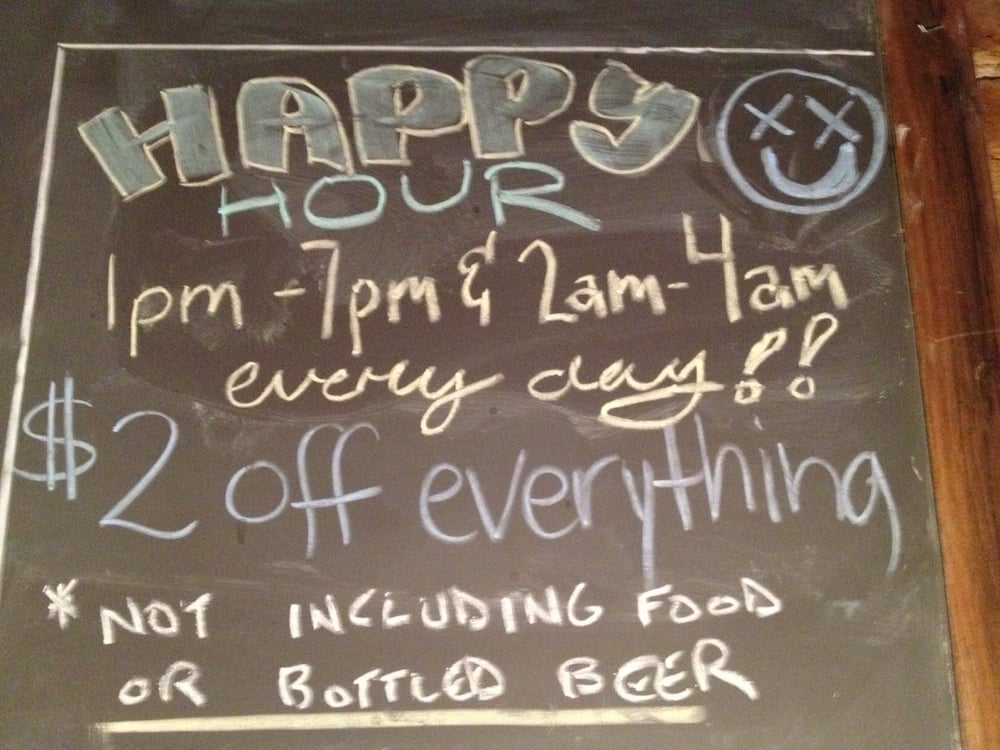 HAPPY
HOUR
1pm - 7pm & 2am - 4am
every day!!
$2 off everything
* NOT INCLUDING FOOD
OR BOTTLED BEER